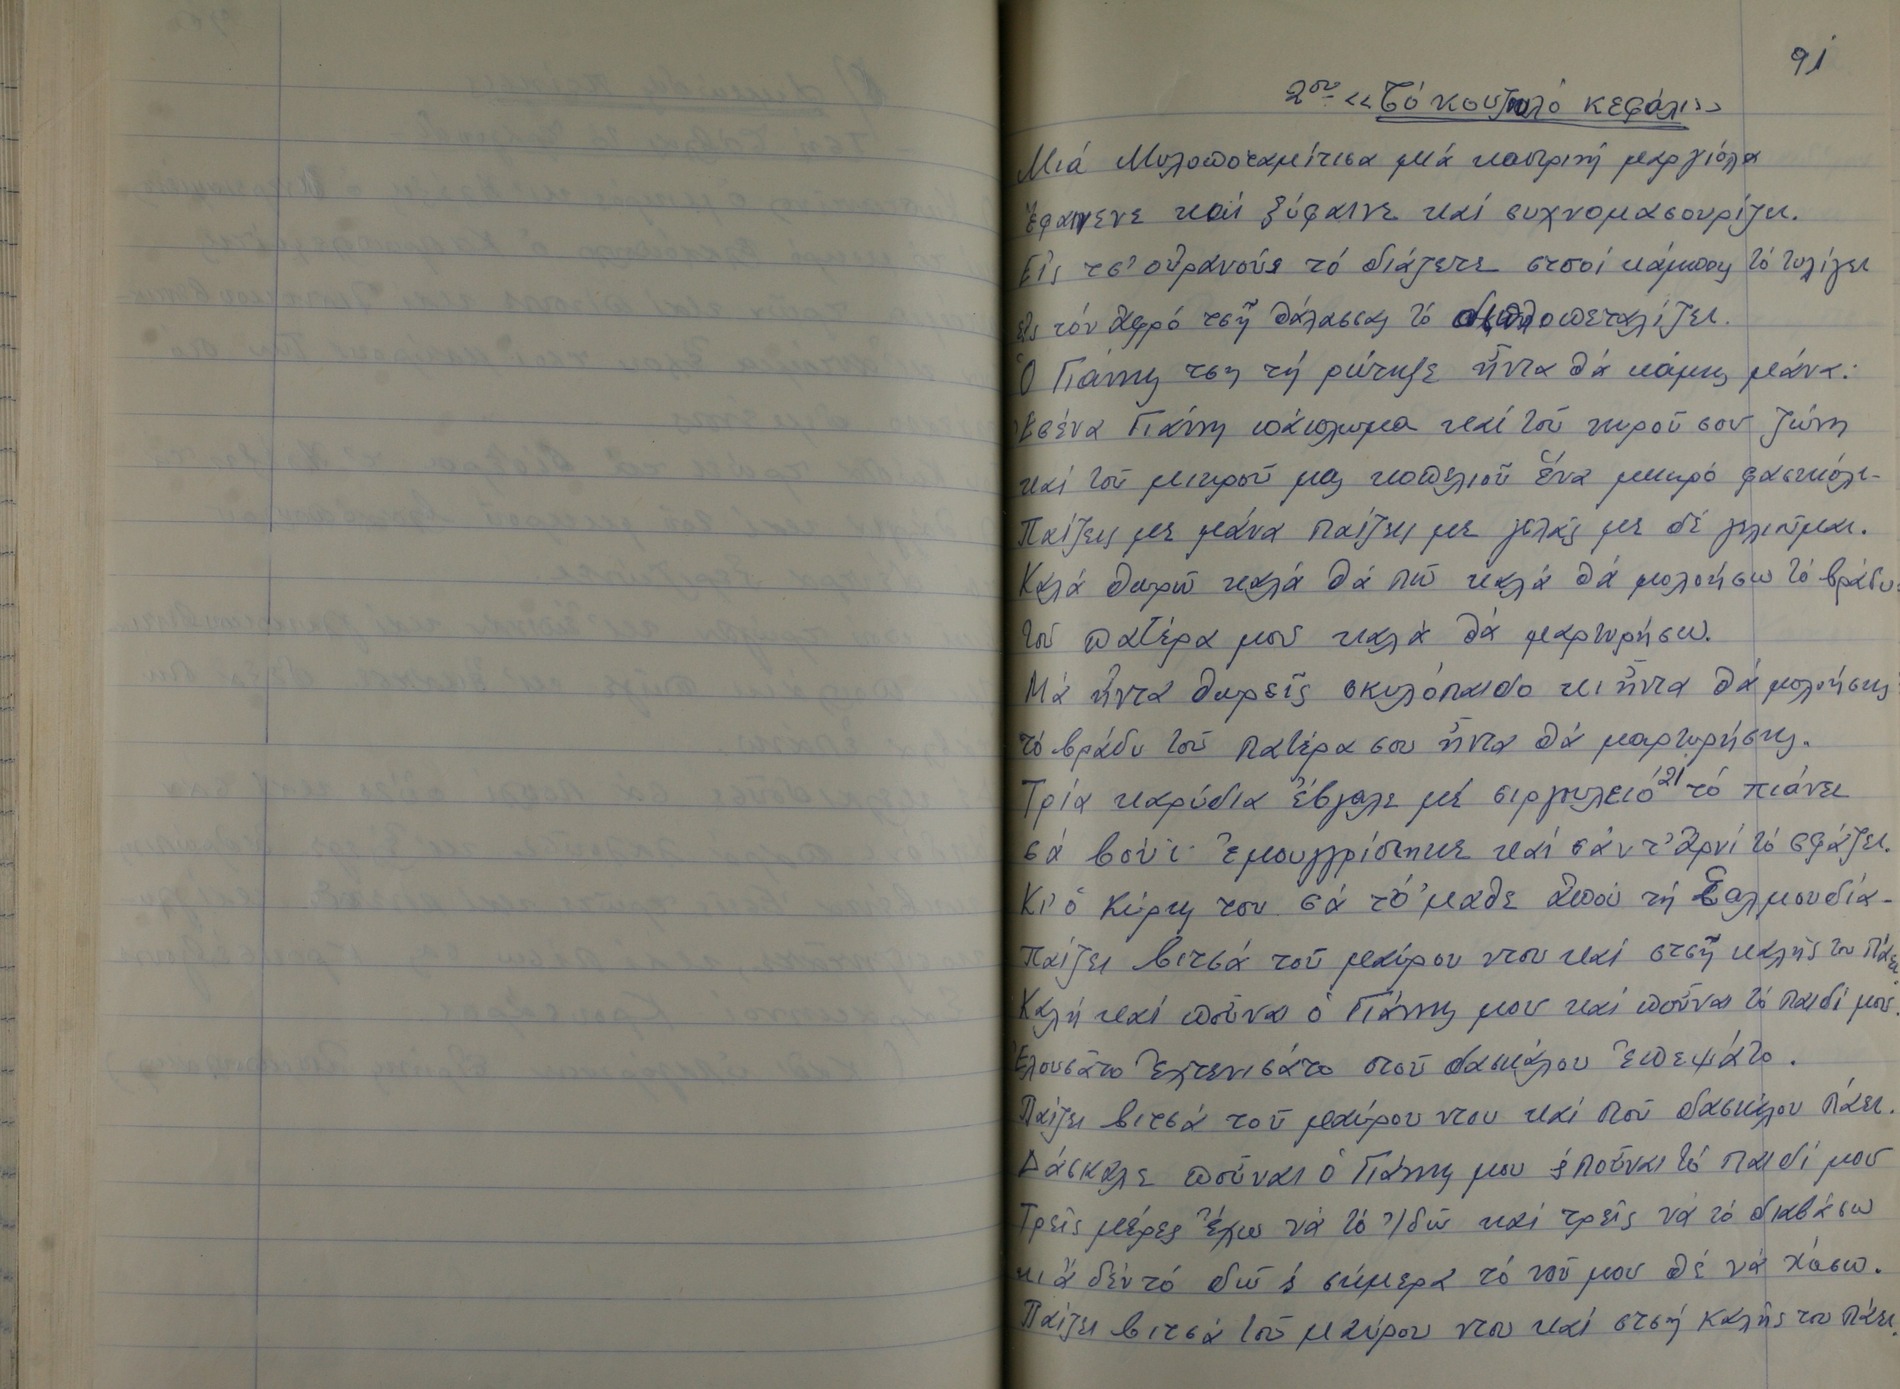 91
2ον « Τό κουζουλό κεφάλι »
Μιά Μυλοποταμίτισα μιά καστρινή μαργιόλα
Ἔφαινενε καί ξύφαινε καί συχνομασουρίζει.
Εἰς τσ' οὐρανούς τό διάζετε στσοί κάμπους τό τυλίγει
εἰς τόν ἀφρό τσῆ θάλασσας τό διπλοπεταλίζει.
Ὁ Γιάννης τση τή ρώτηξε ἦντα θά κάμης μάνα:
Ἐσένα Γιάννη πάπλωμα καί τοῦ κυροῦ σου ζώνη
καί τοῦ μικροῦ μας κοπελιοῦ ἕνα μικρό φασκιόλι-
Παίζεις με μάνα παίζεις με γελᾶς με δέ γελιοῦμαι.
Καλά θωρῶ καλά θά πῶ καλά θά μολοήσω τό βράδυ:
τοῦ πατέρα μου καλά θά μαρτυρήσω.
Μά ἦντα θωρεῖς σκυλόπαιδο κι ἦντα θά μολοήσης
τό βράδυ τοῦ πατέρα σου ἦντα θά μαρτυρήσης.
Τρία καρύδια ἔβγαλε μέ σιργουλειό 21 τό πιάνει
σά βούι ἐμουγγρίστηκε καί σάν τ' ἀρνί τό σφάζει.
Κι' ὁ Κύρης του σά τό 'μαθε ἀπού τή Σαλμουδιά-
παίζει βιτσά τοῦ μαύρου ντου καί στσῆ καλῆς του πάει
Καλή καί ποῦναι ὁ Γιάννης μου καί ποῦναι τό παιδί μου.
Ἐλουσάτο ἐχτενισάτο στοῦ δασκάλου ἐπεψάτο.
Παίζει βιτσά τοῦ μαύρου ντου καί στοῦ δασκάλου πάει.
Δάσκαλε ποῦναι ὁ Γιάννης μου ἐ ποῦναι τό παιδί μου
Τρεῖς μέρες ἔχω νά τό ἰδῶ καί τρεῖς νά τό διαβάσω
κιά δέν τό δῶ ἐ σήμερα τό νοῦ μου θέ νά χάσω.
Παίζει βιτσά τοῦ μαύρου ντου καί στσή καλῆς του πάει.